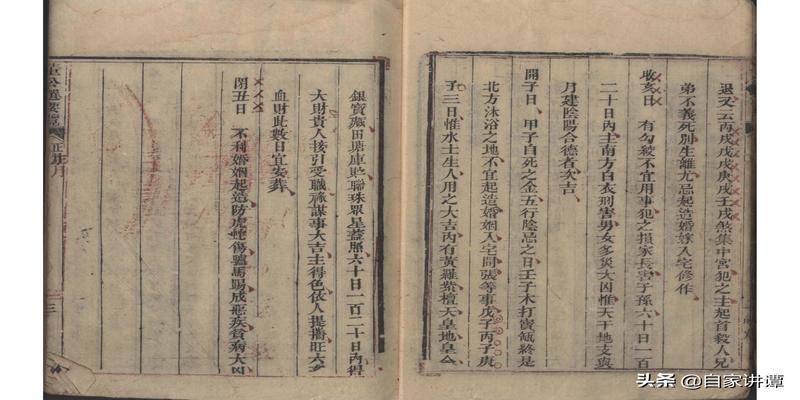 退又云丙戌戊戌庚戌壬戌煞集中宮犯之主起首殺人兄
弟不義死別生離尤忌起造婚嫁入宅修作
收亥日 有勾絞不宜用事犯之損家長害子孫六十日一百
二十日內主南方白衣刑害男女多災大凶惟天干地支與
月建陰陽合德者次吉
開子日 甲子自死之金五行陰忌之日壬子木打寶瓶終是
北方沐浴之地不宜起造婚姻入宅開張等事戊子丙子庚
子三日惟水土生人用之大吉內有黃羅紫檀天皇地皇金
銀寶藏田塘庫貯聯珠眾星蓋照六十日一百二十日內得
大財貴人接引受職祿謀事大吉主得色依人提攜旺六
血財此數日宜安葬
閉丑日 不利婚姻起造防虎蛇傷驢馬踢成惡疾貧病大凶
董公選要覽
正月
三
头条 @自家讲谭